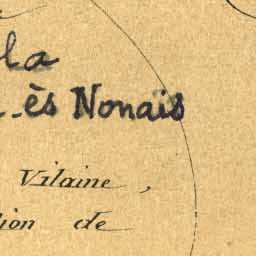 la
-ès Nonais
Vilaine,
tion de